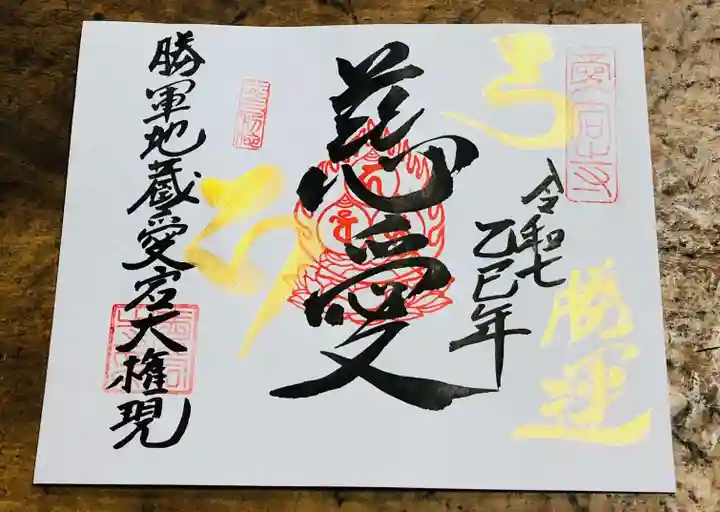 勝運
令和七
乙巳年
慈愛
勝軍地蔵愛宕大権現